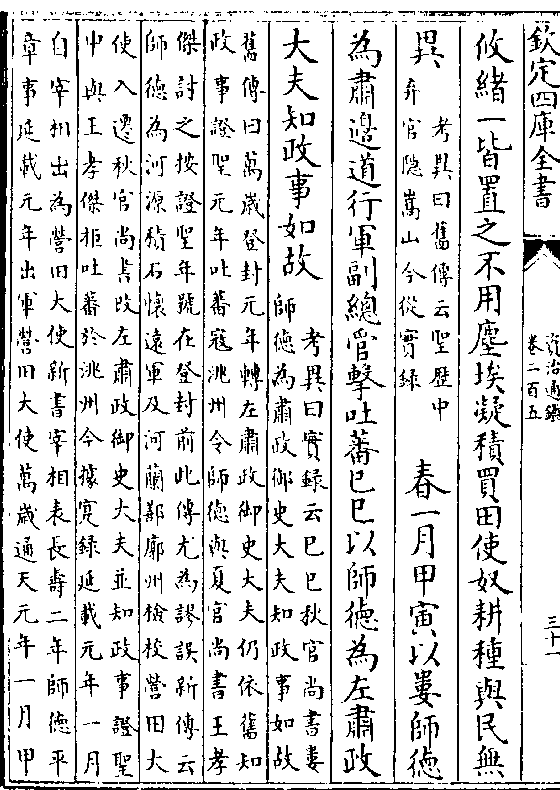 欽定四庫全書
資治通鑑
卷二百五
三十
攸緒一皆置之不用塵埃凝積買田使奴耕種與民無
異考異曰舊傳云聖歴中
弃官隠嵩山今從實録
春一月甲寅以婁師徳
為肅邊道行軍副總管擊吐蕃巳巳以師徳為左肅政
大夫知政事如故
考異曰實録云巳巳秋官尚書婁
師徳為肅政御史大夫知政事如故
舊傳曰萬歳登封元年轉左肅政御史大夫仍依舊知
政事證聖元年吐蕃寇洮州令師徳與夏官尚書王孝
傑討之按證聖年號在登封前此傳尤為謬誤新傳云
師徳為河源積石懐遠軍及河蘭鄯廓州檢校營田大
使入遷秋官尚書改左肅政御史大夫並知政事證聖
中與王孝傑拒吐蕃於洮州今據實録延載元年一月
自宰相出為營田大使新書宰相表長夀二年師徳平
章事延載元年出軍營田大使萬歳通天元年一月甲